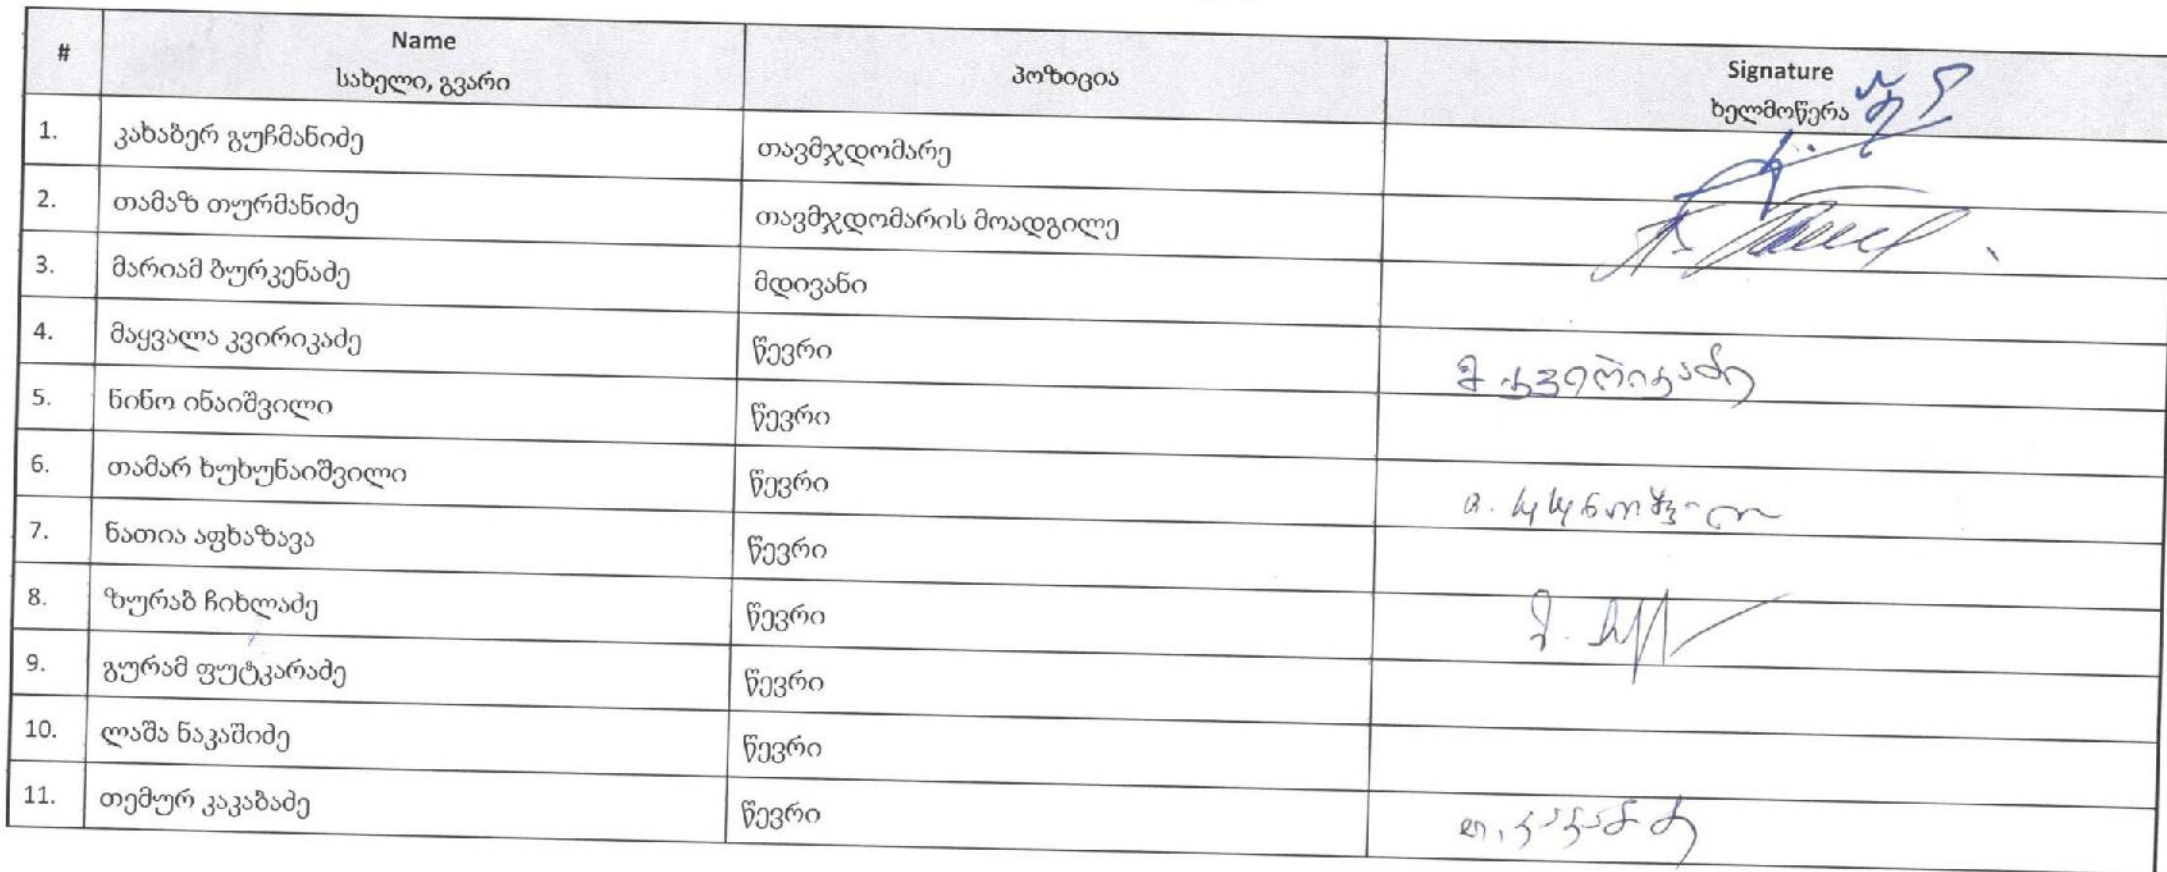 #
Name
სახელი, გვარი
პოზიცია
Signature
ხელმოწერა
1. კახაბერ გუჩმანიძე თავმჯდომარე
2. თამაზ თურმანიძე თავმჯდომარის მოადგილე
3. მარიამ ბურკენაძე მდივანი
4. მაყვალა კვირიკაძე წევრი მ. კვირიკაძე
5. ნინო ინაიშვილი წევრი
6. თამარ ხუხუნაიშვილი წევრი
7. ნათია აფხაზავა წევრი
8. ზურაბ ჩიხლაძე წევრი
9. გურამ ფუტკარაძე წევრი
10. ლაშა ნაკაშიძე წევრი
11. თემურ კაკაბაძე წევრი